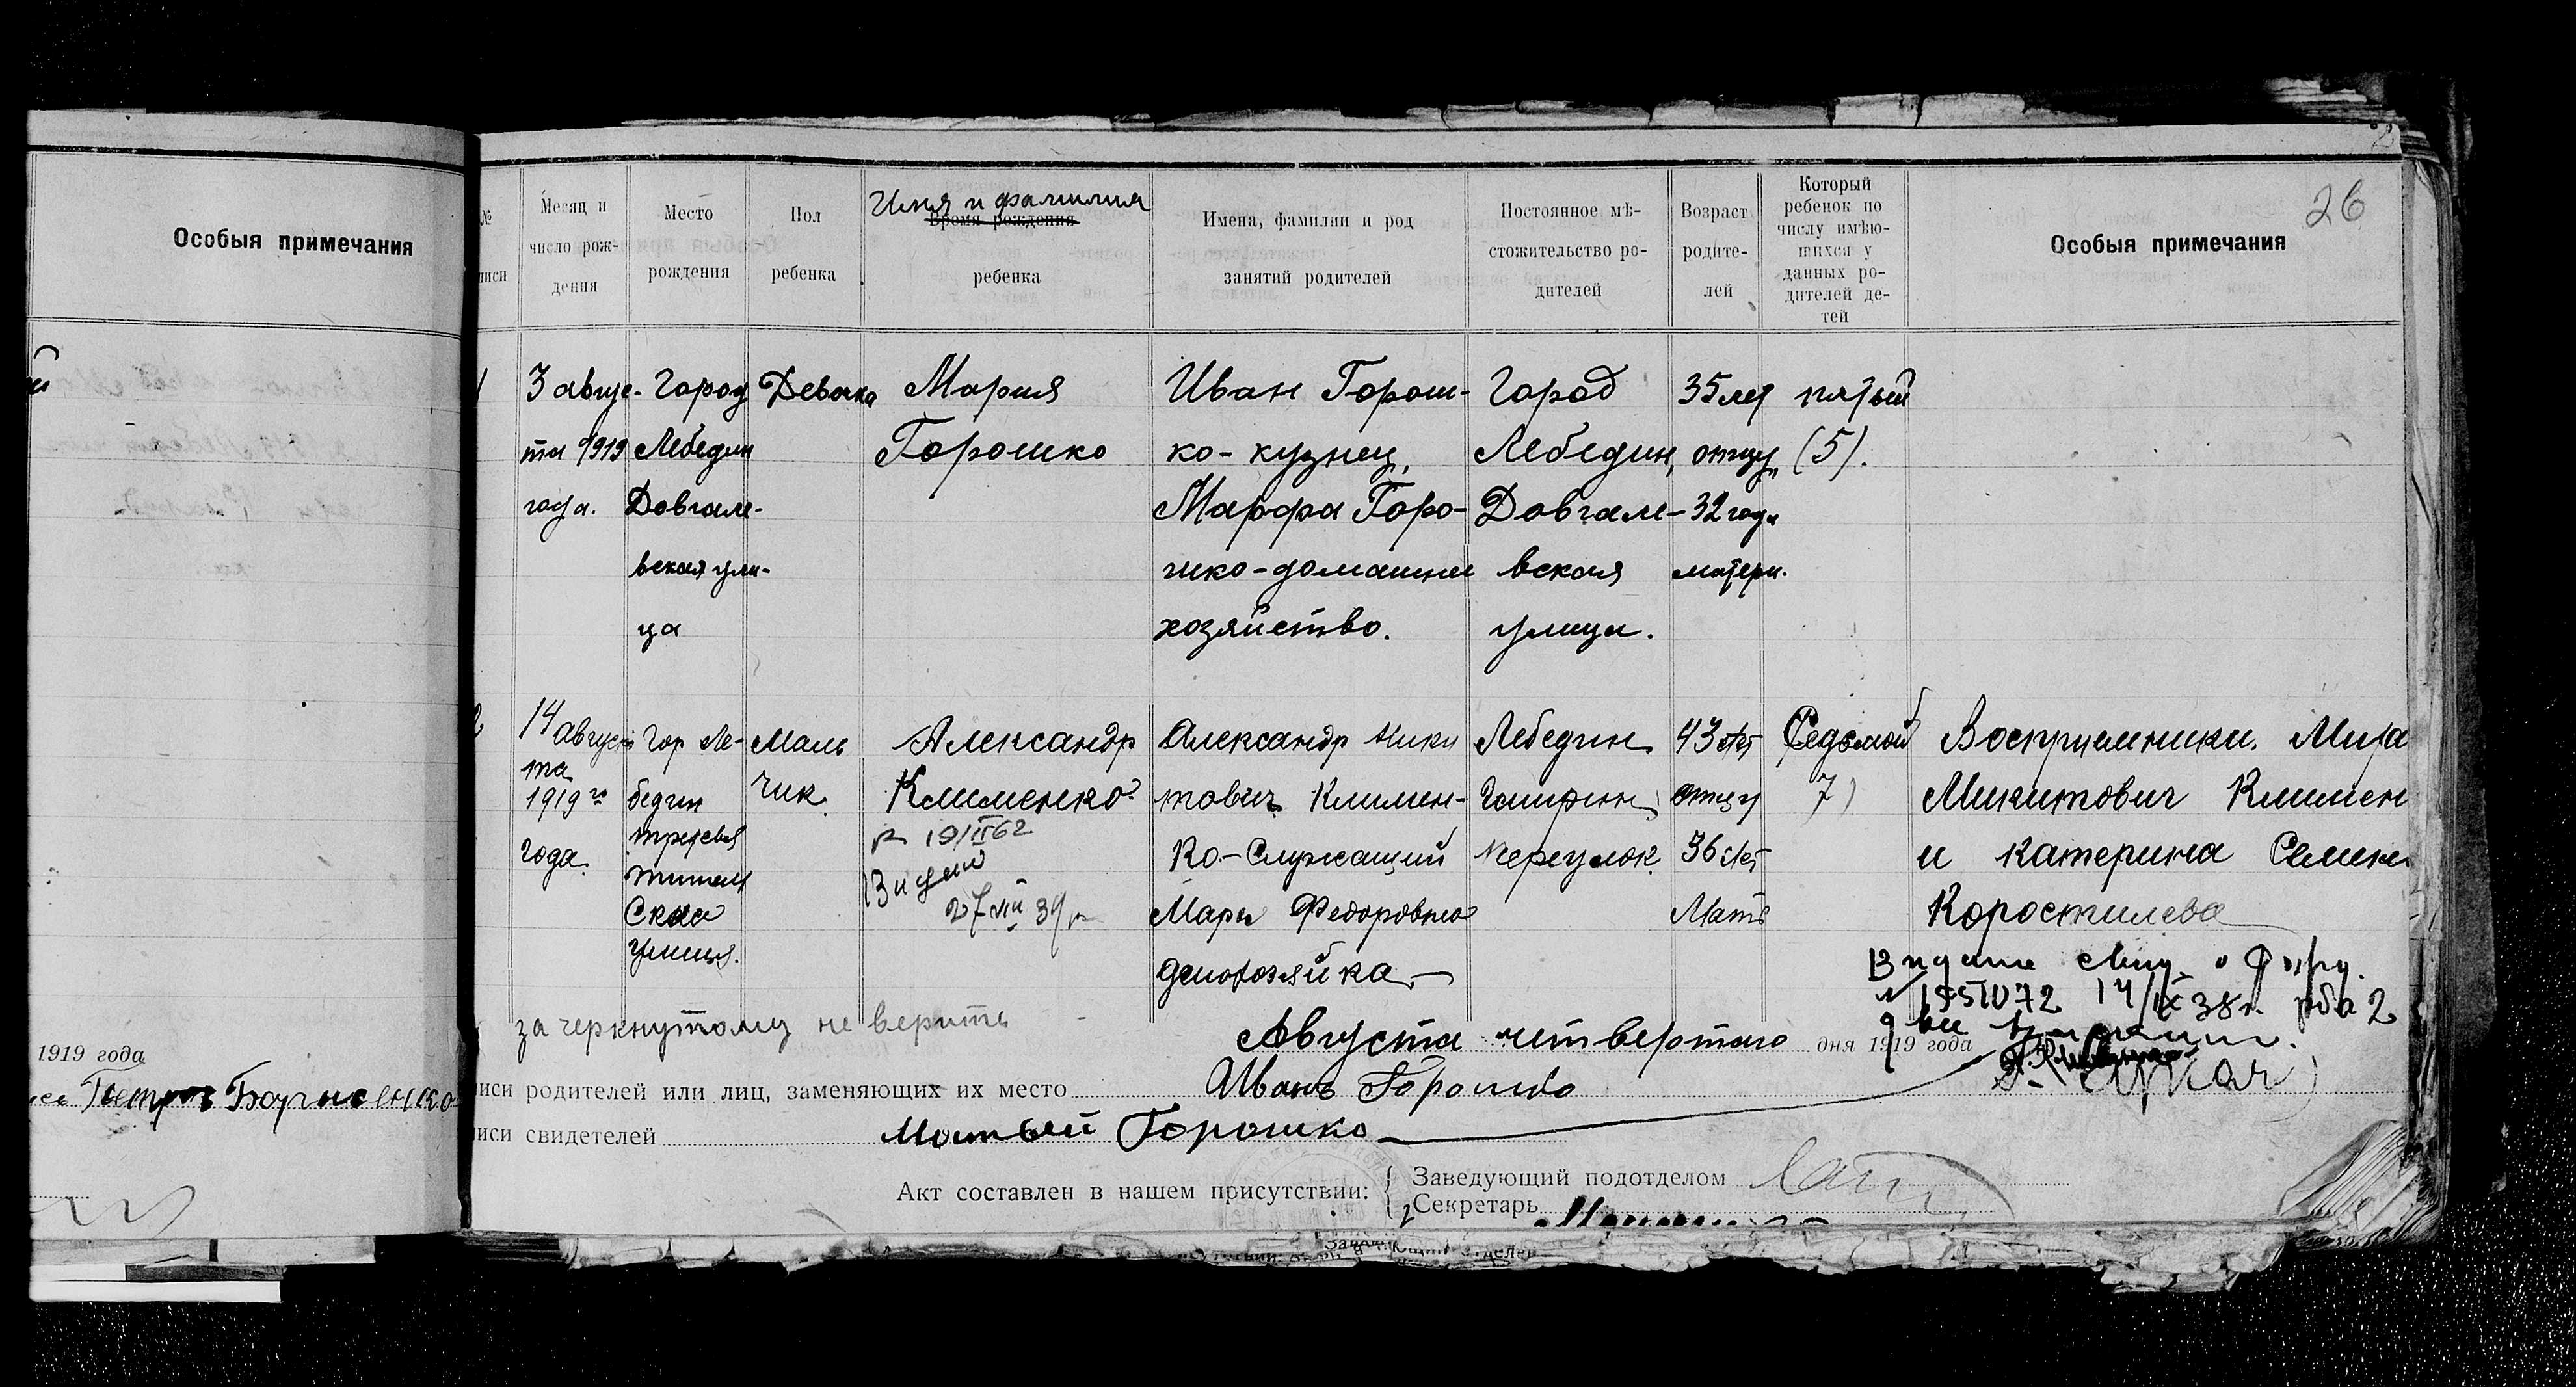 Особыя примечания
1919 года
Петров
№
Месяц и число рождения
Место рождения
Пол ребенка
Имя и фамилия
Время рождения
ребенка
Имена, фамилии и род занятий родителей
Постоянное мѣстожительство родителей
Возраст родителей
Который ребенок по числу имѣющихся у данных родителей детей
Особыя примечания
26
3 авгус-
та 1919
года.
Город
Лебедин
Довгале-
вская ули-
ца
Девочка
Мария
Горошко
Иван Горош-
ко - кузнец,
Марфа Горо-
шко - домашнее
хозяйство.
Город
Лебедин,
Довгале-
вская
улица.
35 лет
отцу,
32 года
матери.
пятый
(5).
14 августа
та
1919 го
года.
Гор Ле-
бедин
улица.
Маль
чик.
Александр
Клименко.
19/II 62
27 VIII 39 г
Александр Ники
тович Климен-
ко - Служащий
Мария Федоровна
домохозяйка -
Лебедин
переулок.
43 лет
отцу
36 лет
Мать
Седьмой
7)
Восприемники.
Микитович Климен
и Катерина Семен
Коростилева
14/IX 38 г.
зачеркнутому не верить
Августа четвертого дня 1919 года
иси родителей или лиц, заменяющих их место Иванъ Горошко
иси свидетелей Матвей Горошко
Акт составлен в нашем присутствии:
Заведующий подотделом
Секретарь